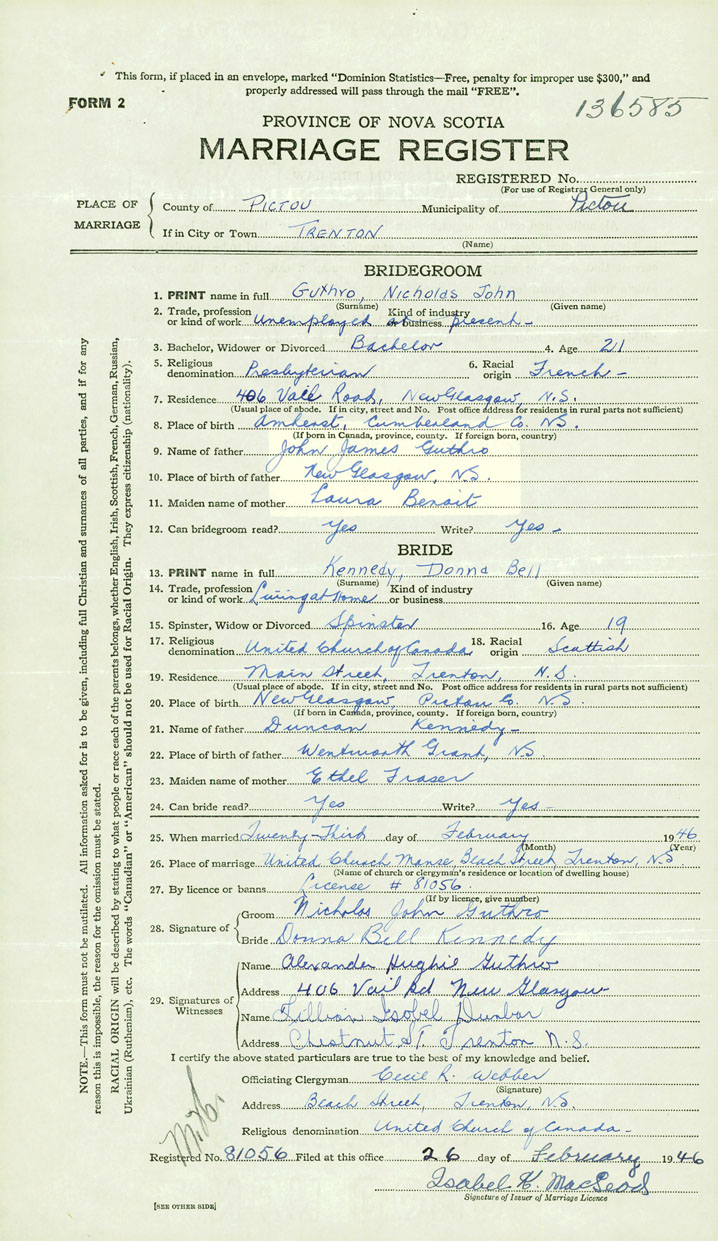 This form, if placed in an envelope, marked “Dominion Statistics—Free, penalty for improper use $300,” and
properly addressed will pass through the mail “FREE”.
FORM 2
136585
PROVINCE OF NOVA SCOTIA
MARRIAGE REGISTER
REGISTERED No.
(For use of Registrar General only)
PLACE OF MARRIAGE
County of PICTOU Municipality of Pictou
If in City or Town TRENTON
(Name)
BRIDEGROOM
1. PRINT name in full Guthro, Nicholas John
(Surname) (Given name)
2. Trade, profession or kind of work Unemployed at Kind of industry or business present -
3. Bachelor, Widower or Divorced Bachelor 4. Age 21
5. Religious denomination Presbyterian 6. Racial origin French -
7. Residence 406 Vale Road, New Glasgow, N.S.
(Usual place of abode. If in city, street and No. Post office address for residents in rural parts not sufficient)
8. Place of birth Amherst, Cumberland Co. N.S.
(If born in Canada, province, county. If foreign born, country)
9. Name of father John James Guthro
10. Place of birth of father New Glasgow, N.S.
11. Maiden name of mother Laura Benoit
12. Can bridegroom read? Yes Write? Yes -
BRIDE
13. PRINT name in full Kennedy, Donna Bell
(Surname) (Given name)
14. Trade, profession or kind of work Living at Home Kind of industry or business
15. Spinster, Widow or Divorced Spinster 16. Age 19
17. Religious denomination United Church of Canada 18. Racial origin Scottish
19. Residence Main Street, Trenton, N.S.
(Usual place of abode. If in city, street and No. Post office address for residents in rural parts not sufficient)
20. Place of birth New Glasgow, Pictou Co. N.S.
(If born in Canada, province, county. If foreign born, country)
21. Name of father Duncan Kennedy -
22. Place of birth of father Wentworth Grant, N.S.
23. Maiden name of mother Ethel Fraser
24. Can bride read? Yes Write? Yes -
25. When married Twenty-Third day of February 1946
(Month) (Year)
26. Place of marriage United Church Manse, Beach Street, Trenton, N.S
(Name of church or clergyman's residence or location of dwelling house)
27. By licence or banns License # 81056
(If by licence, give number)
28. Signature of
Groom Nicholas John Guthro
Bride Donna Bell Kennedy
29. Signatures of Witnesses
Name Alexander Hughie Guthro
Address 406 Vail Rd New Glasgow
Name Lillian Isobel Dunbar
Address Chestnut ST. Trenton N.S.
I certify the above stated particulars are true to the best of my knowledge and belief.
Officiating Clergyman Cecil R. Webber
(Signature)
Address Beach Street, Trenton, N.S.
Religious denomination United Church of Canada -
Registered No. 81056 Filed at this office 26 day of February 1946
Isabel K. MacLeod
Signature of Issuer of Marriage Licence
[SEE OTHER SIDE]
NOTE.—This form must not be mutilated. All information asked for is to be given, including full Christian and surnames of all parties, and if for any
reason this is impossible, the reason for the omission must be stated.
RACIAL ORIGIN will be described by stating to what people or race each of the parents belongs, whether English, Irish, Scottish, French, German, Russian,
Ukrainian (Ruthenian), etc. The words “Canadian” or “American” should not be used for Racial Origin. They express citizenship (nationality).